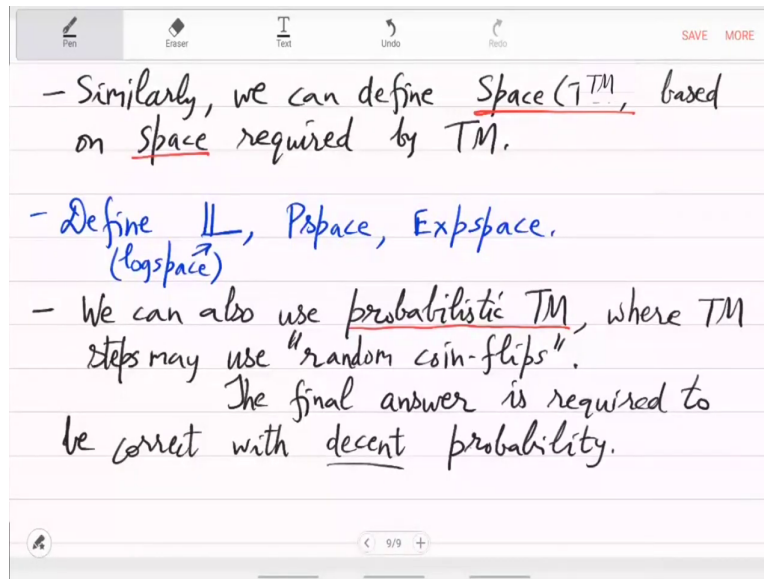 Pen Eraser Text Undo Redo SAVE MORE
- Similarly, we can define Space(T™, based
on space required by TM.
- Define 𝕃, Pspace, Expspace.
(logspace)
- We can also use probabilistic TM, where TM
steps may use "random coin-flips".
The final answer is required to
be correct with decent probability.
9/9